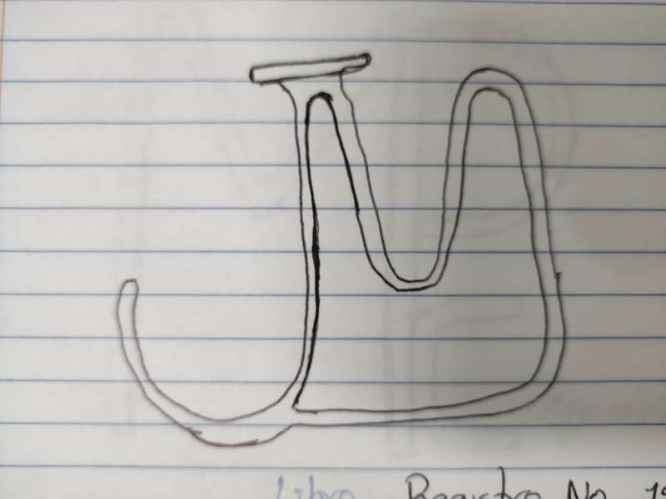 JM
Libro Registro No.